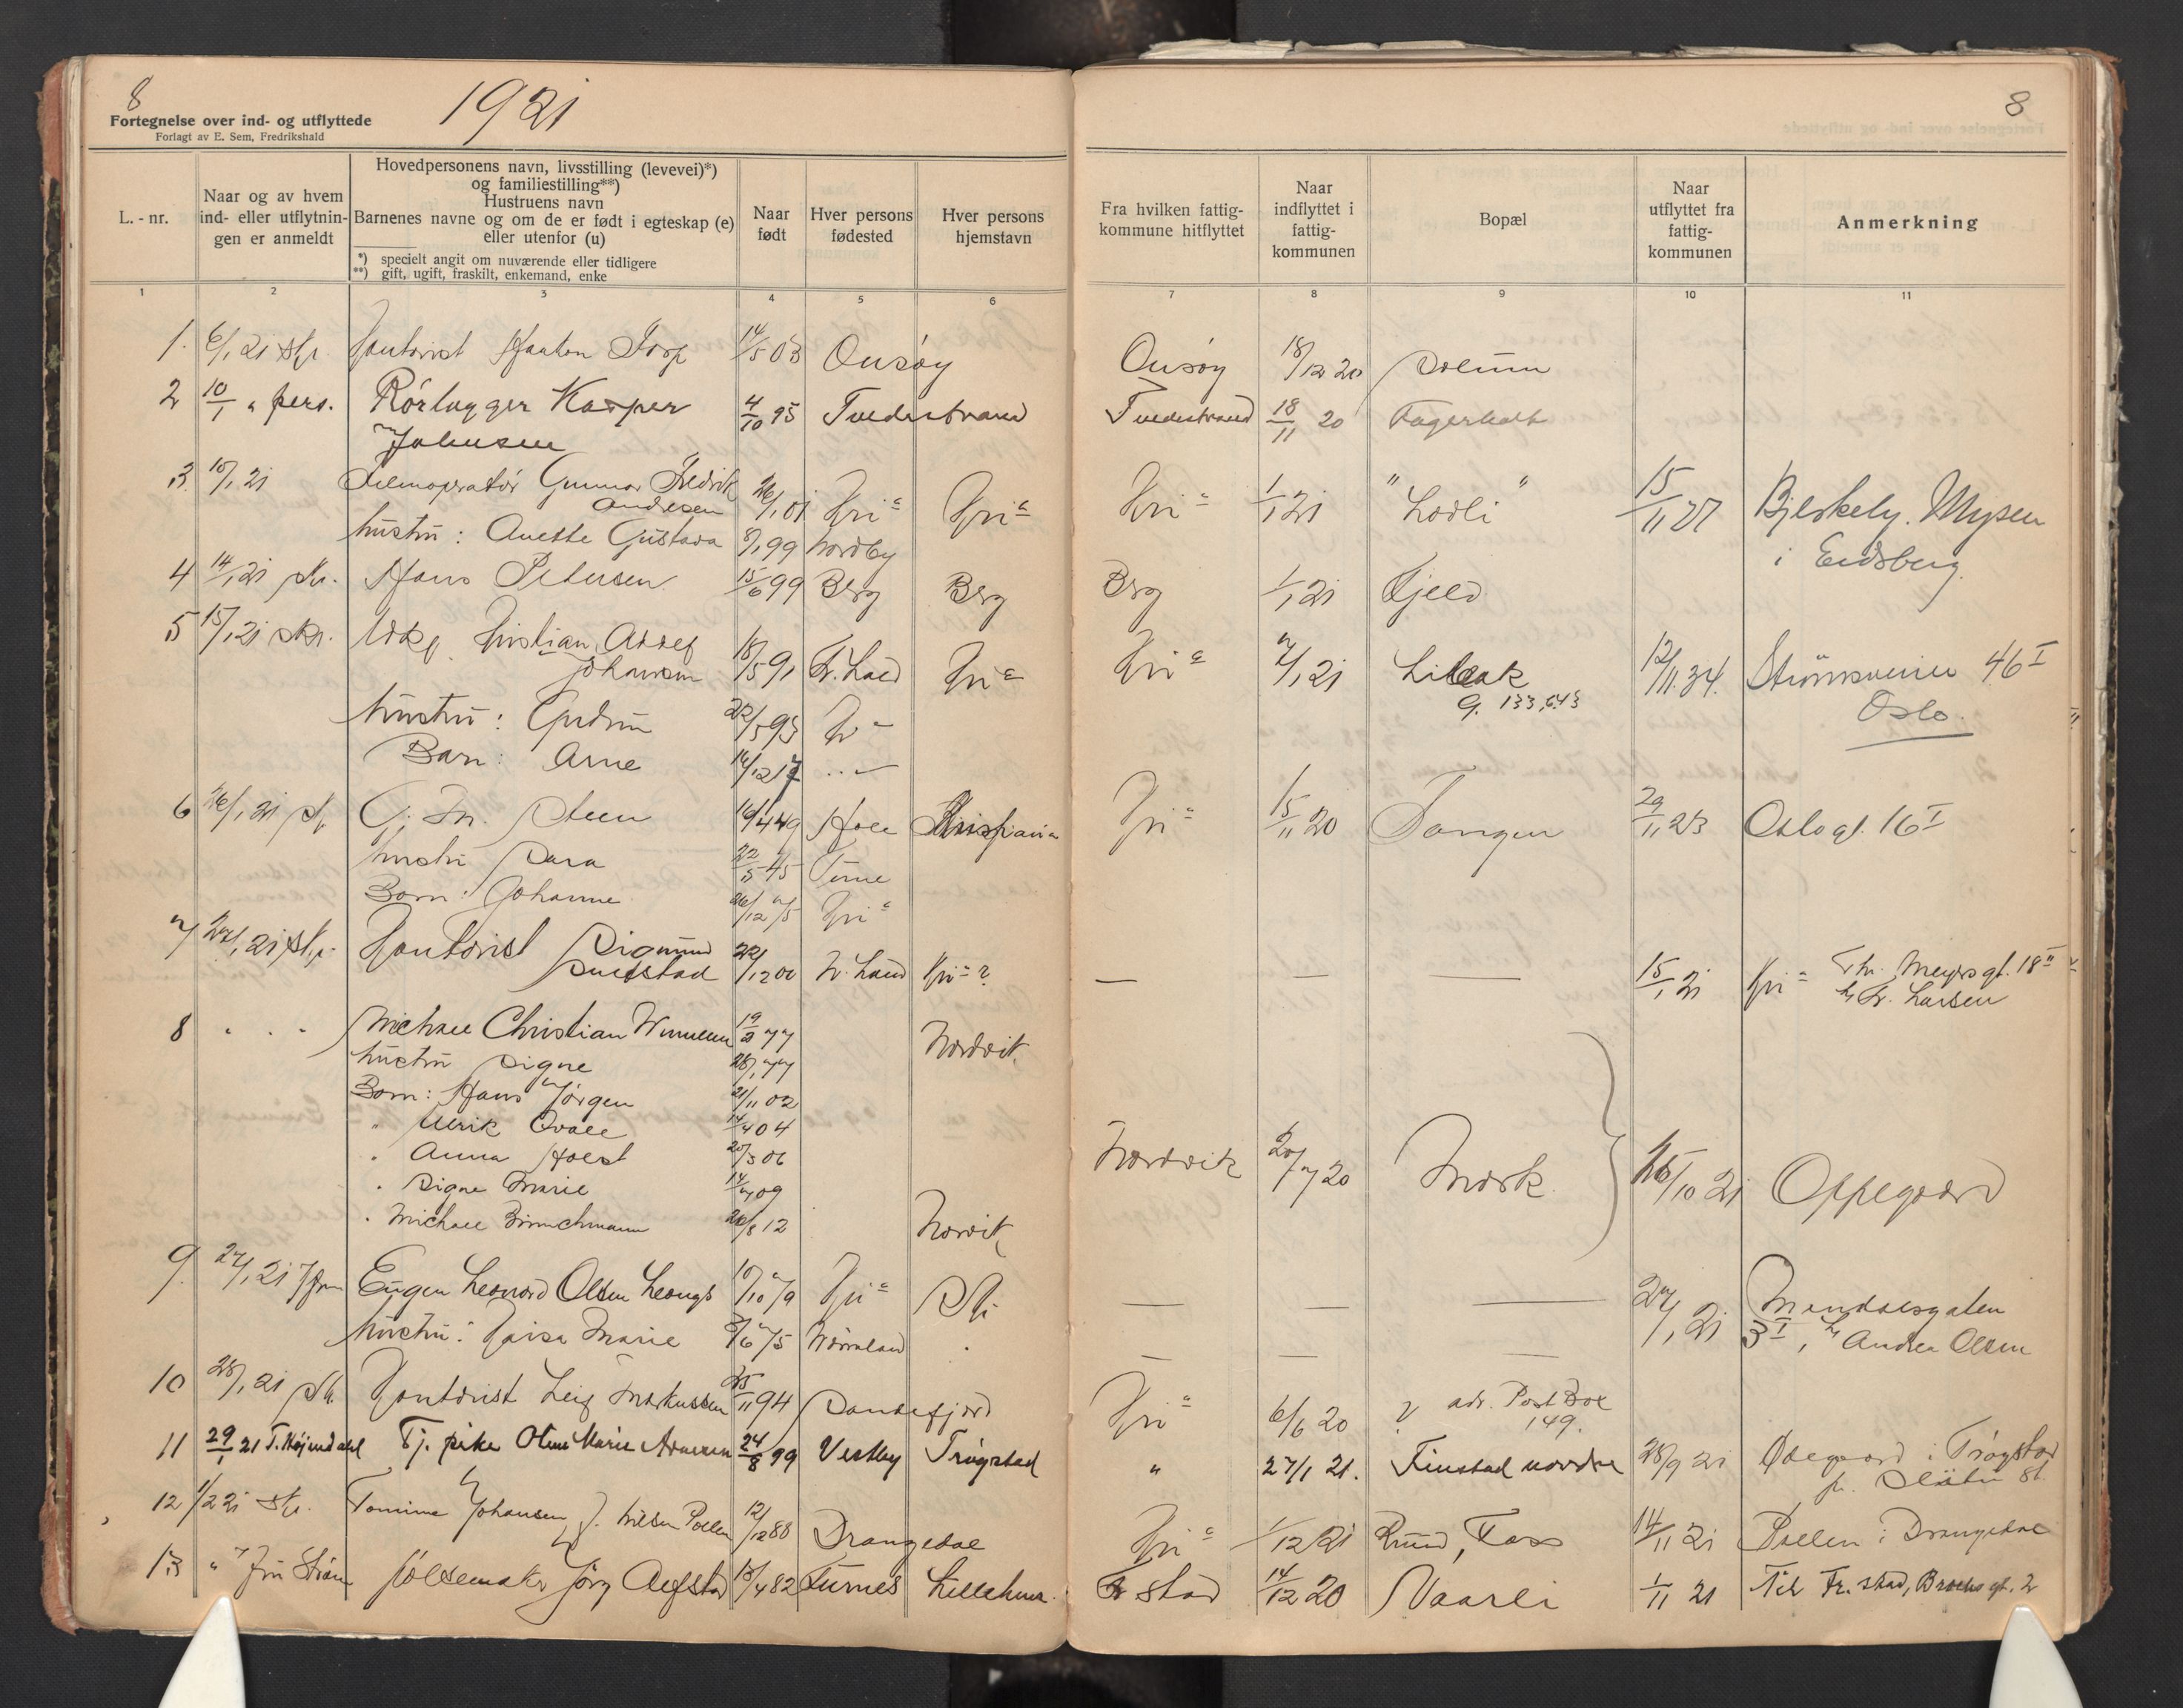 8
1921
Fortegnelse over ind- og utflyttede
Forlagt av E. Sem, Fredrikshald
8
L. - nr.
Naar og av hvem ind- eller utflytnin- gen er anmeldt
Hovedpersonens navn, livsstilling (levevei)*)
og familiestilling**)
Hustruens navn
Barnenes navne og om de er født i egteskap (e)
eller utenfor (u)
*) specielt angit om nuværende eller tidligere
**) gift, ugift, fraskilt, enkemand, enke
Naar født
Hver persons fødested
Hver persons hjemstavn
Fra hvilken fattig- kommune hitflyttet
Naar indflyttet i fattig- kommunen
Bopæl
Naar utflyttet fra fattig- kommunen
Anmerkning
1 2 3 4 5 6 7 8 9 10 11
1. 6/1 21 skr. Kontorist Haakon Torp 14/5 03 Onsøy Onsøy 18/12 20 Solum
2 10/1 " pers. Rørlægger Kasper 4/10 95 Tvedestrand Tvedestrand 18/11 20 Fagerholt
Johnsen
3. 10/1 21 Filmoperatør Gunnar Fredrik
Andresen 26/1 01 Kri a Kri a Kri a 1/1 21 "Lorli" 15/11 27 Bjerkely. Mysen
hustru: Anette Gustava 8/1 99 Nordby i Eidsberg.
4 14/1 21 skr. Hans Petersen 15/6 99 Berg Berg Berg 1/1 21 Fjeld
5 15/1 21 skr. Kristian Adolf
Johansen 18/5 91 Fr. hald Kri a Kri a 7/1 21 Libak 12/11 34. Strømsveien 46 I
G. 133,643 Oslo.
hustru: Gudrun 22/5 93 Kr a
Barn: Arne 14/12 17 " "
6 26/1 21 sk. Steen 16/4 49 Hole Kristiania Kri a 15/11 20 Tangen 29/11 23 Oslogt. 16 I
hustru Sara 22/5 45
Born: Johanne 26/12 75 Kri a
7 27/1 21 skr. Kontorist Sigmund
22/12 00 Fr. hald Kri a ? — — — 15/1 21 Kri a Thr. Meyersgt. 18 II
h/ Fr. Larsen
8 " " " Michael Christian 19/2 77 Nordvik
hustru Signe 28/1 77
Born: Hans Jørgen 21/11 02
" Ulrik Qvale 14/4 04
" Anna Holst 20/3 06 Nordvik 20/7 20 Mork. 26/10 21 Oppegaard
" Signe Marie 14/7 09
" Michael 20/8 12 Norvik
9. 27/1 21 Eugen Leonard Olsen 10/10 79 Kri a Ski — — — 27/1 21 Mandalsgaten
3 I, h/ Andrea Olsen
hustru: Kaisa Marie 75 Wærmland " — — —
10 28/1 21 sk. Kontorist Leif Markussen 25/11 94 Sandefjord Kri a 6/6 20 ? adr. Post Box
149.
11 29/1 21 T. Højendahl Tj. pike Oline Marie 24/8 99 Vestby Trøgstad " 27/1 21. Finstad nordre 28/9 21 i Trøgstad
pr. Slitu st.
12 1/2 21 skr. Tomine Johansen f. Nilsen Pollen 12/12 88 Drangedal Kri a 1/12 21 Ruud, Foss 14/11 21 Pollen i Drangedal
13 " Strøm Pølsemaker Jørg 13/4 82 Furnes Lillehmr. Fr. stad 14/12 20 Vaarli 1/11 21 Til Fr. stad, Brochs gt. 2